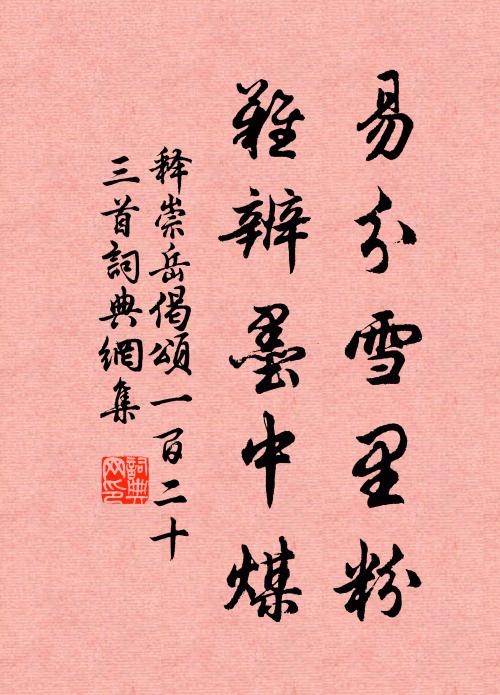 易分雪里粉
難辨墨中煤
释崇岳偈頌一百二十
三首詞典網集
詞典
网印